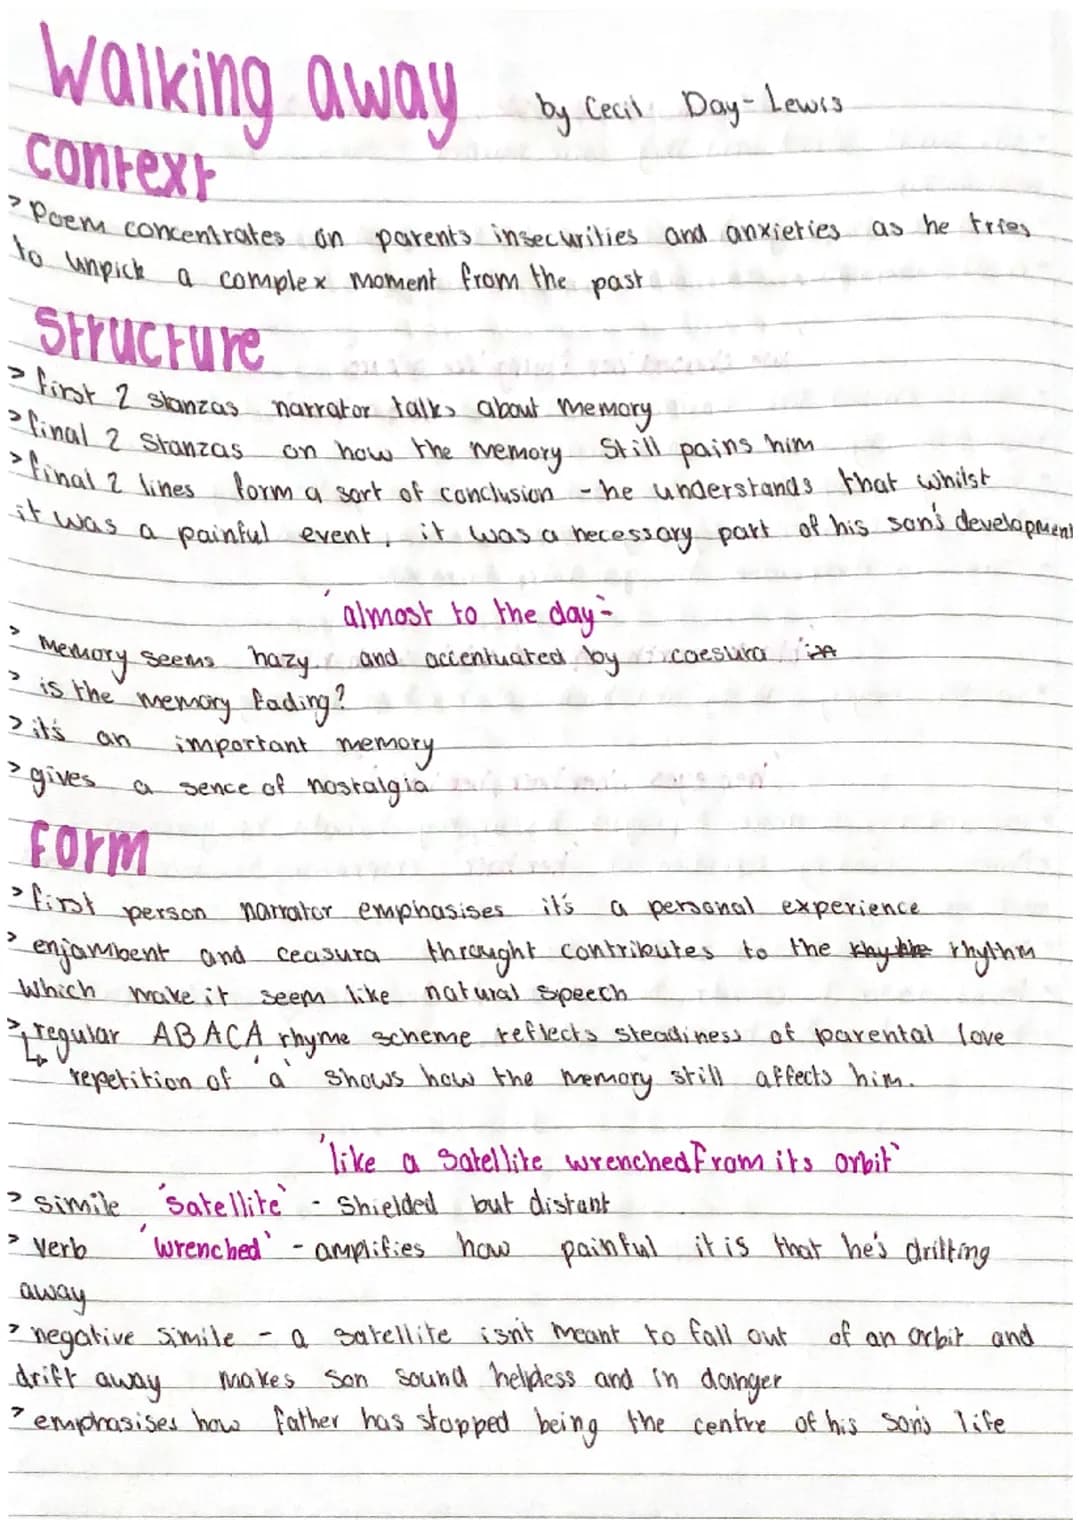 Walking away by Cecil Day-Lewis
context
> Poem concentrates on parents insecurities and anxieties as he tries
to unpick a complex moment from the past
Structure
> first 2 stanzas narrator talks about memory
> final 2 Stanzas on how the memory Still pains him
> final 2 lines form a sort of conclusion - he understands that whilst
it was a painful event, it was a necessary part of his son's development
'almost to the day-
> memory seems hazy and accentuated by caesura
> is the memory fading?
> it's an important memory
> gives a sence of nostalgia
Form
> first person narrator emphasises it's a personal experience
> enjambent and ceasura throught contributes to the rhythm
which make it seem like natural speech
> regular ABACA rhyme scheme reflects steadiness of parental love
↳ repetition of 'a' shows how the memory still affects him.
'like a satellite wrenched from its orbit'
> simile 'satellite' - shielded but distant
> verb 'wrenched' - amplifies how painful it is that he's drifting
away
> negative simile - a satellite isn't meant to fall out of an orbit and
drift away makes son sound helpless and in danger
> emphasises how father has stopped being the centre of his son's life